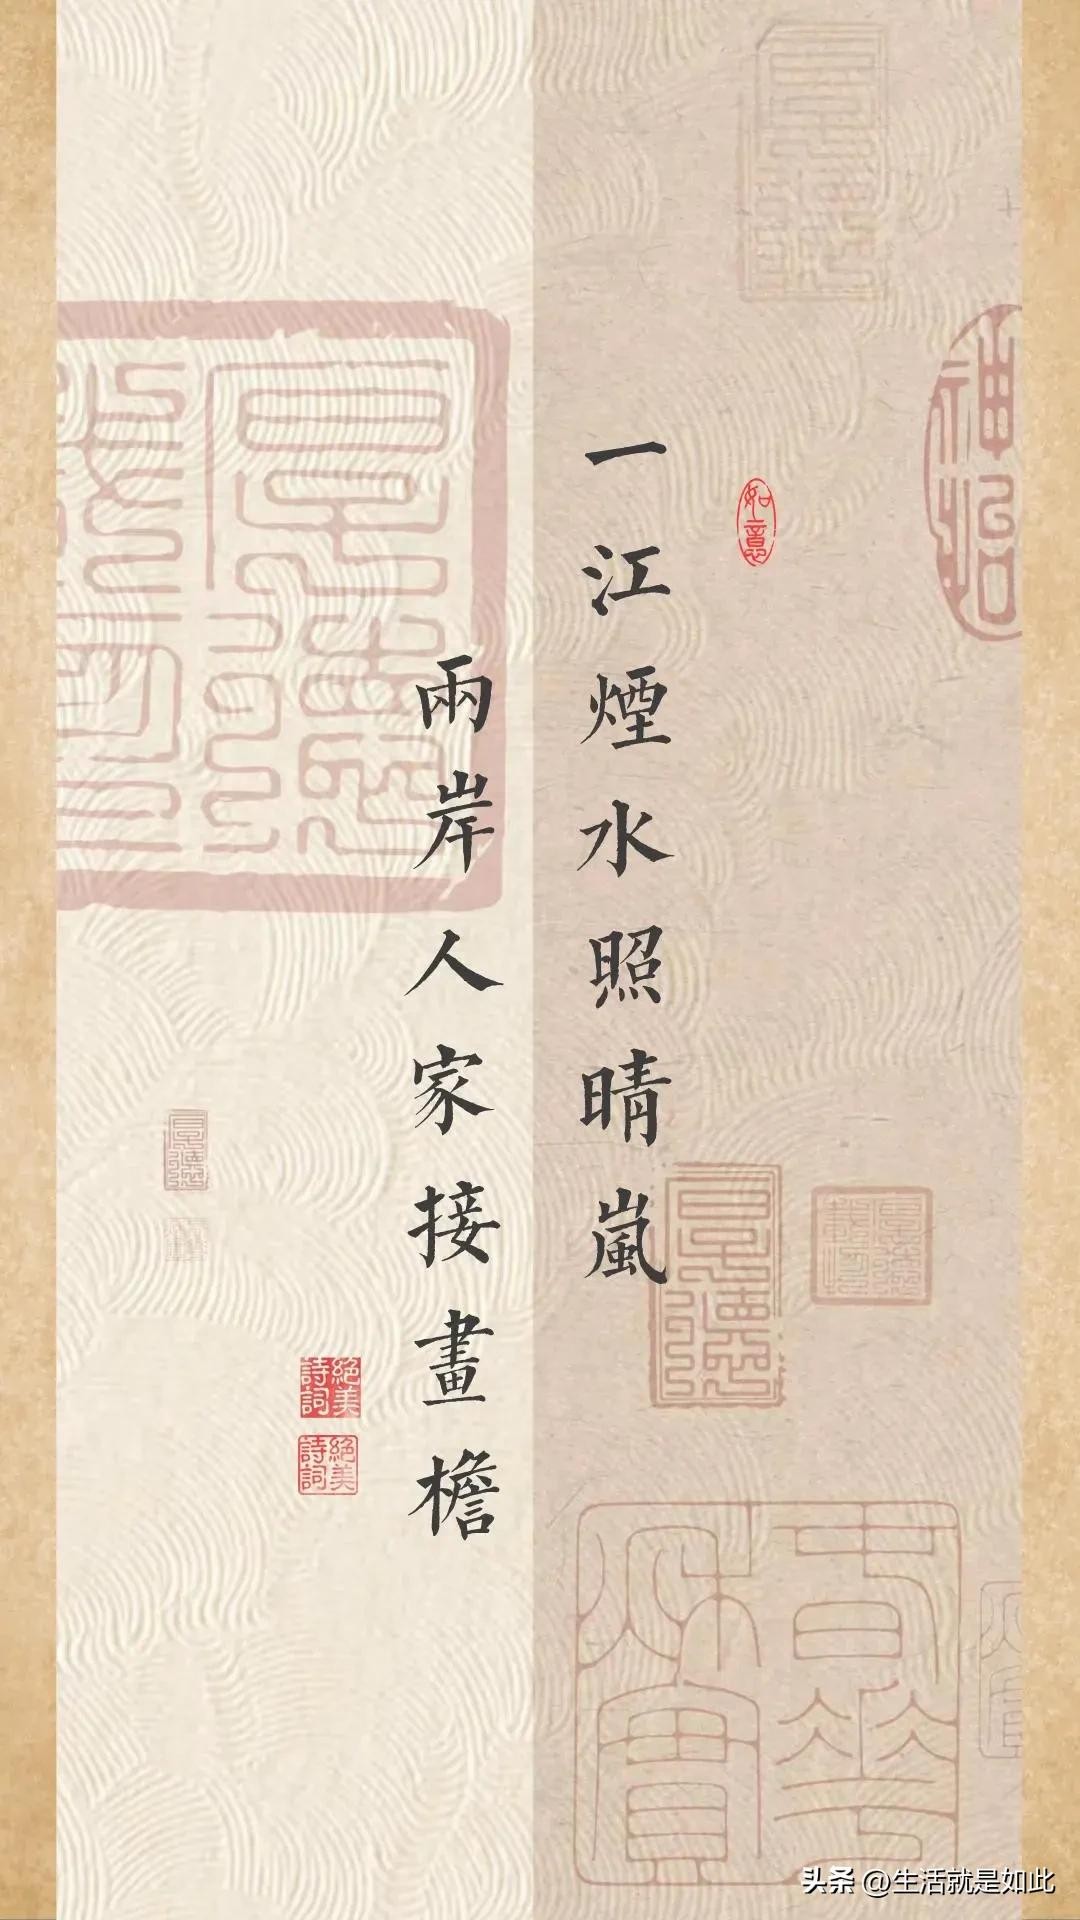 一江煙水照晴嵐
兩岸人家接畫檐
如意
絕美詩詞
絕美詩詞
神怡
春華秋實
头条 @生活就是如此